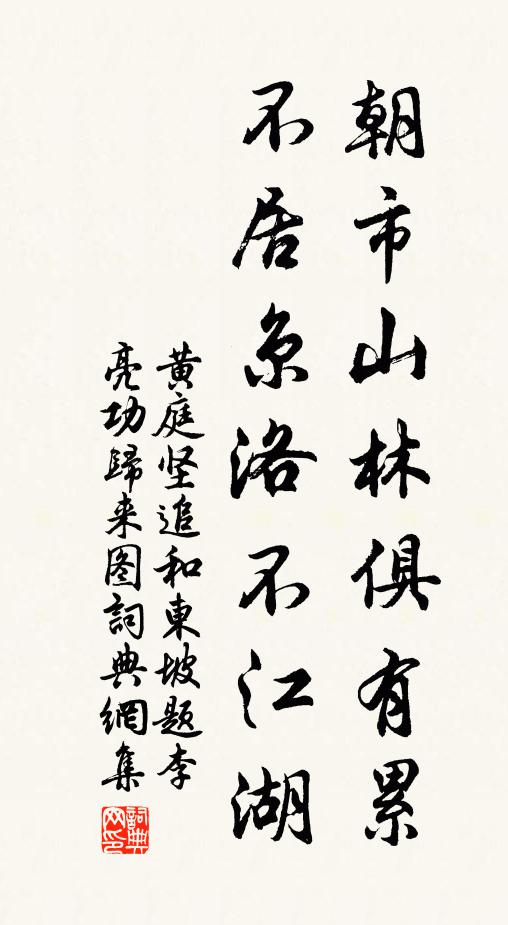 朝市山林俱有累
不居京洛不江湖
黄庭坚追和東坡题李
亮功歸来图詞典網集
詞典网印